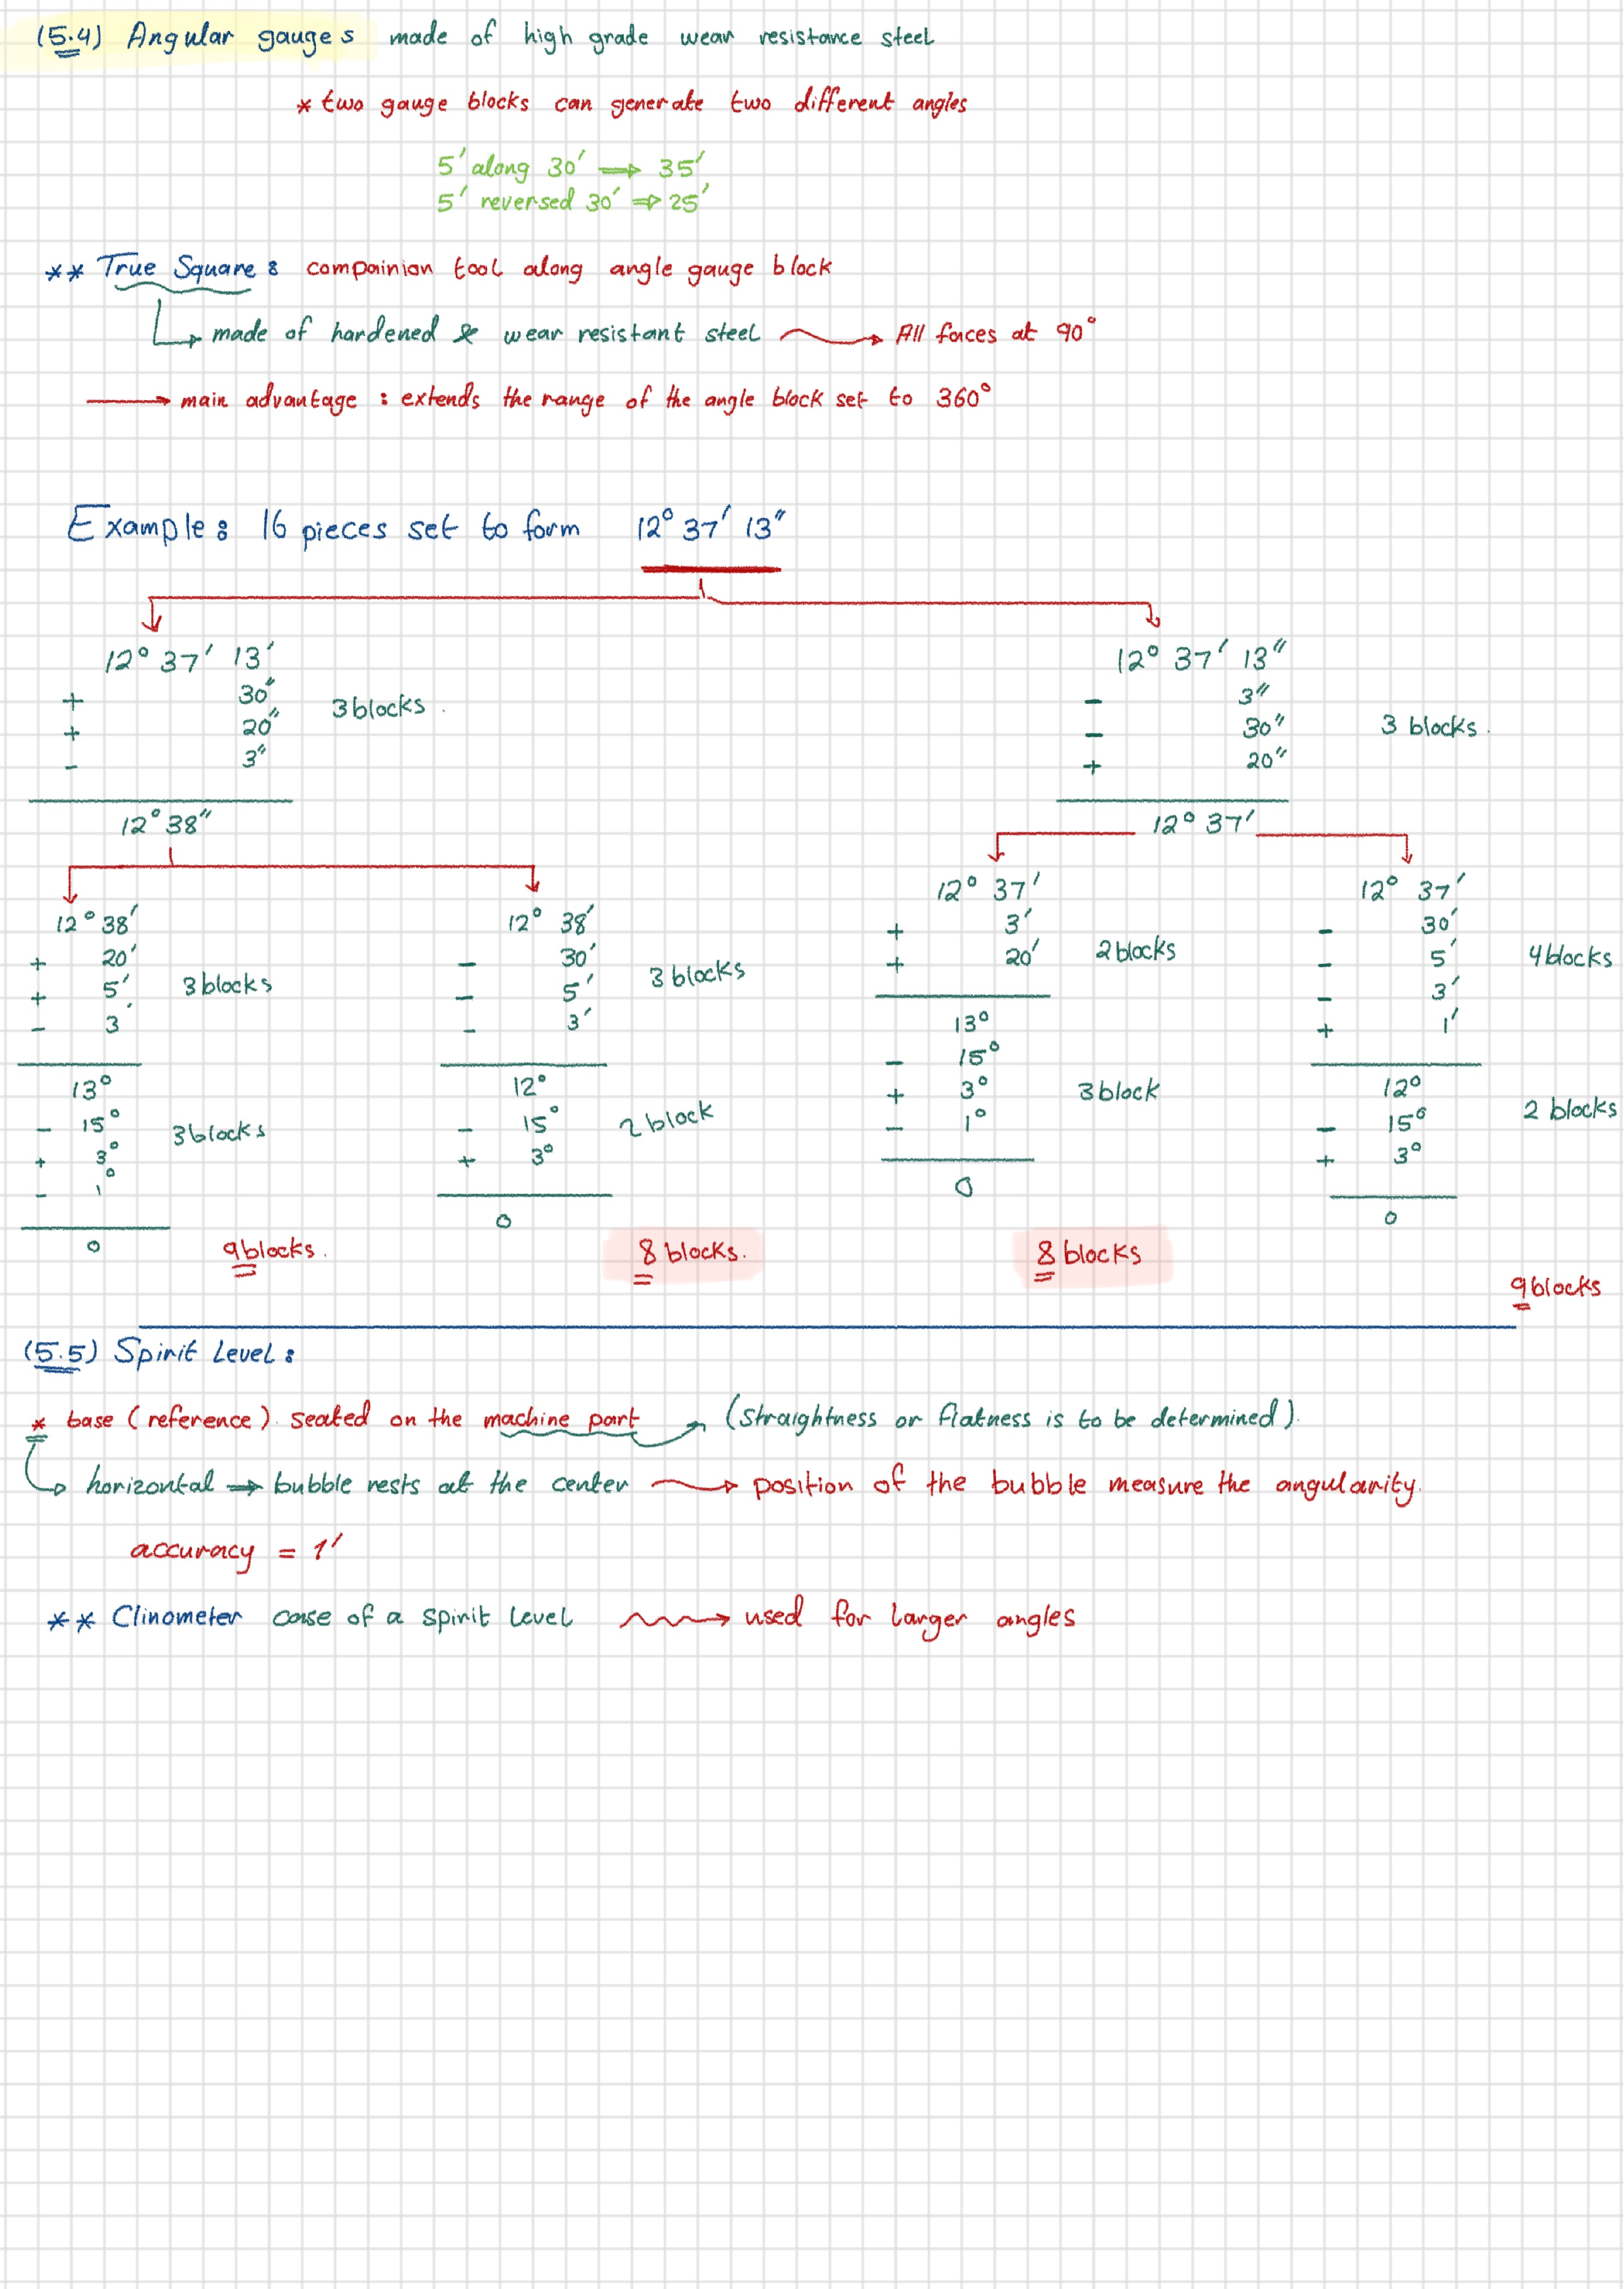 (5.4) Angular gauges made of high grade wear resistance steel
* two gauge blocks can generate two different angles
5′ along 30′ ⇒ 35′
5′ reversed 30′ ⇒ 25′
** True Square : compainion tool along angle gauge block
↳ made of hardened & wear resistant steel → All faces at 90°
→ main advantage : extends the range of the angle block set to 360°
Example: 16 pieces set to form 12° 37′ 13″
12° 37′ 13′
+ 30″
+ 20″
- 3″
3 blocks.
12° 38″
12° 38′
+ 20′
+ 5′
- 3
3 blocks
13°
- 15°
+ 3°
- 1°
3 blocks
0
9 blocks.
12° 38′
- 30′
- 5′
- 3′
3 blocks
12°
- 15°
+ 3°
2 block
0
8 blocks.
12° 37′ 13″
- 3″
- 30″
+ 20″
3 blocks.
12° 37′
12° 37′
+ 3′
+ 20′
2 blocks
13°
- 15°
+ 3°
- 1°
3 block
0
8 blocks
12° 37′
- 30′
- 5′
- 3′
+ 1′
4 blocks
12°
- 15°
+ 3°
2 blocks
0
9 blocks
(5.5) Spirit Level :
* base (reference) seated on the machine part → (straightness or flatness is to be determined).
↳ horizontal ⇒ bubble rests at the center → position of the bubble measure the angularity.
accuracy = 1′
** Clinometer case of a spirit level → used for larger angles